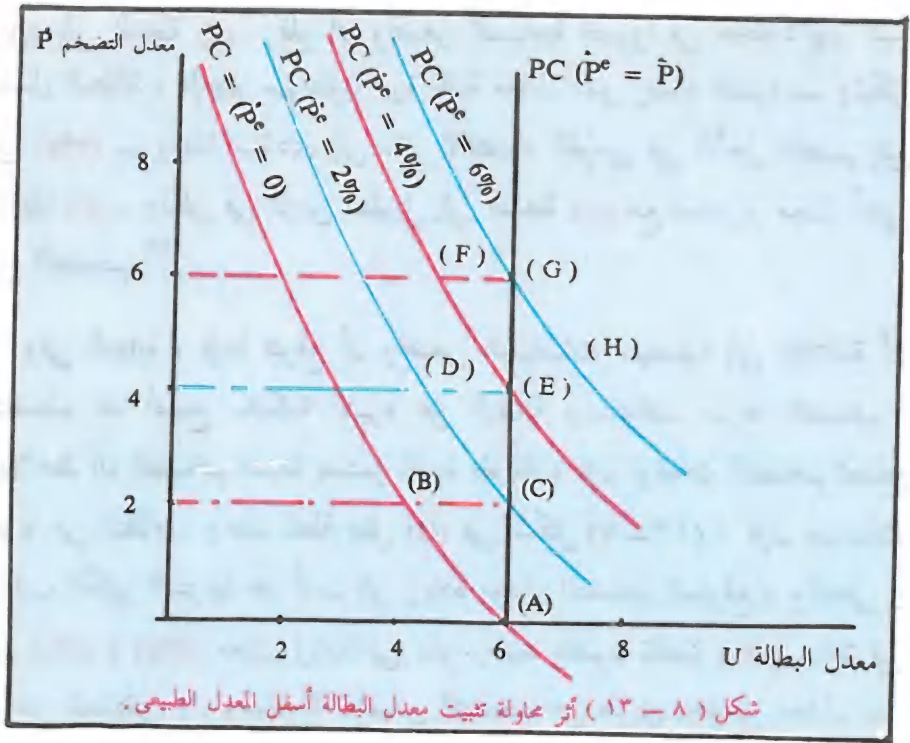 معدل التضخم Ṗ
PC = (Ṗᵉ = 0)
PC (Ṗᵉ = 2%)
PC (Ṗᵉ = 4%)
PC (Ṗᵉ = 6%)
PC (Ṗᵉ = Ṗ)
8
6
4
2
(F)
(G)
(H)
(D)
(E)
(B)
(C)
(A)
2
4
6
8
معدل البطالة U
شكل ( ٨ — ١٣ ) أثر محاولة تثبيت معدل البطالة أسفل المعدل الطبيعى .